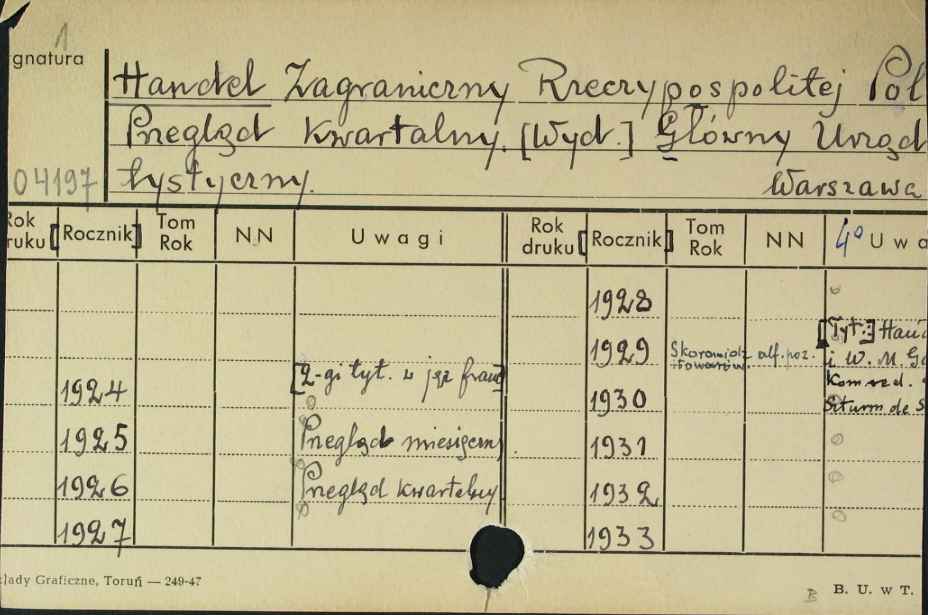 1
gnatura
Handel Zagraniczny Rzeczypospolitej Pol
Przegląd Kwartalny. [Wyd.] Główny Urząd
04197 tystyczny. Warszawa
Rok druku [Rocznik] Tom Rok NN Uwagi Rok druku [Rocznik] Tom Rok NN 4° Uwa
1928
[Tyt.:] Hand
1929 Skorowidz alf. poz. i W. M. Gd
towarów.
[2-gi tyt. w jęz franc
1924 Kom rzd.
1930 Sturm de S
1925 Przegląd miesięczny 1931
1926 Przegląd kwartalny 1932
1927 1933
łady Graficzne, Toruń — 249-47 B. U. w T.